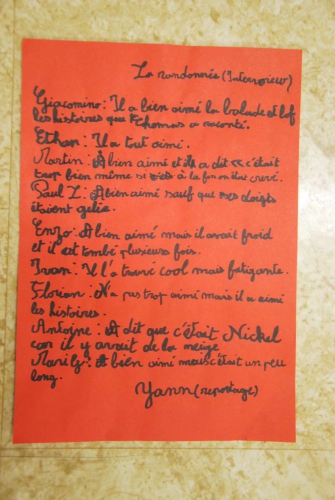 La randonnée (Interwiew)
Giacomino : Il a bien aimé la balade et
les histoires que Thomas a raconté.
Ethan : Il a tout aimé.
Martin : A bien aimé et il a dit << c'était
trop bien même si à la fin on était crevé.
Paul Z : A bien aimé sauf que ses doigts
étaient gelés.
Enzo : A bien aimé mais il avait froid
et il est tombé plusieurs fois.
Ivan : Il l'a trouvé cool mais fatigante.
Florian : N'a pas trop aimé mais il a aimé
les histoires.
Antoine : A dit que c'était Nickel
car il y avait de la neige
Marily : A bien aimé mais c'était un peu
long.
Yann (reportage)